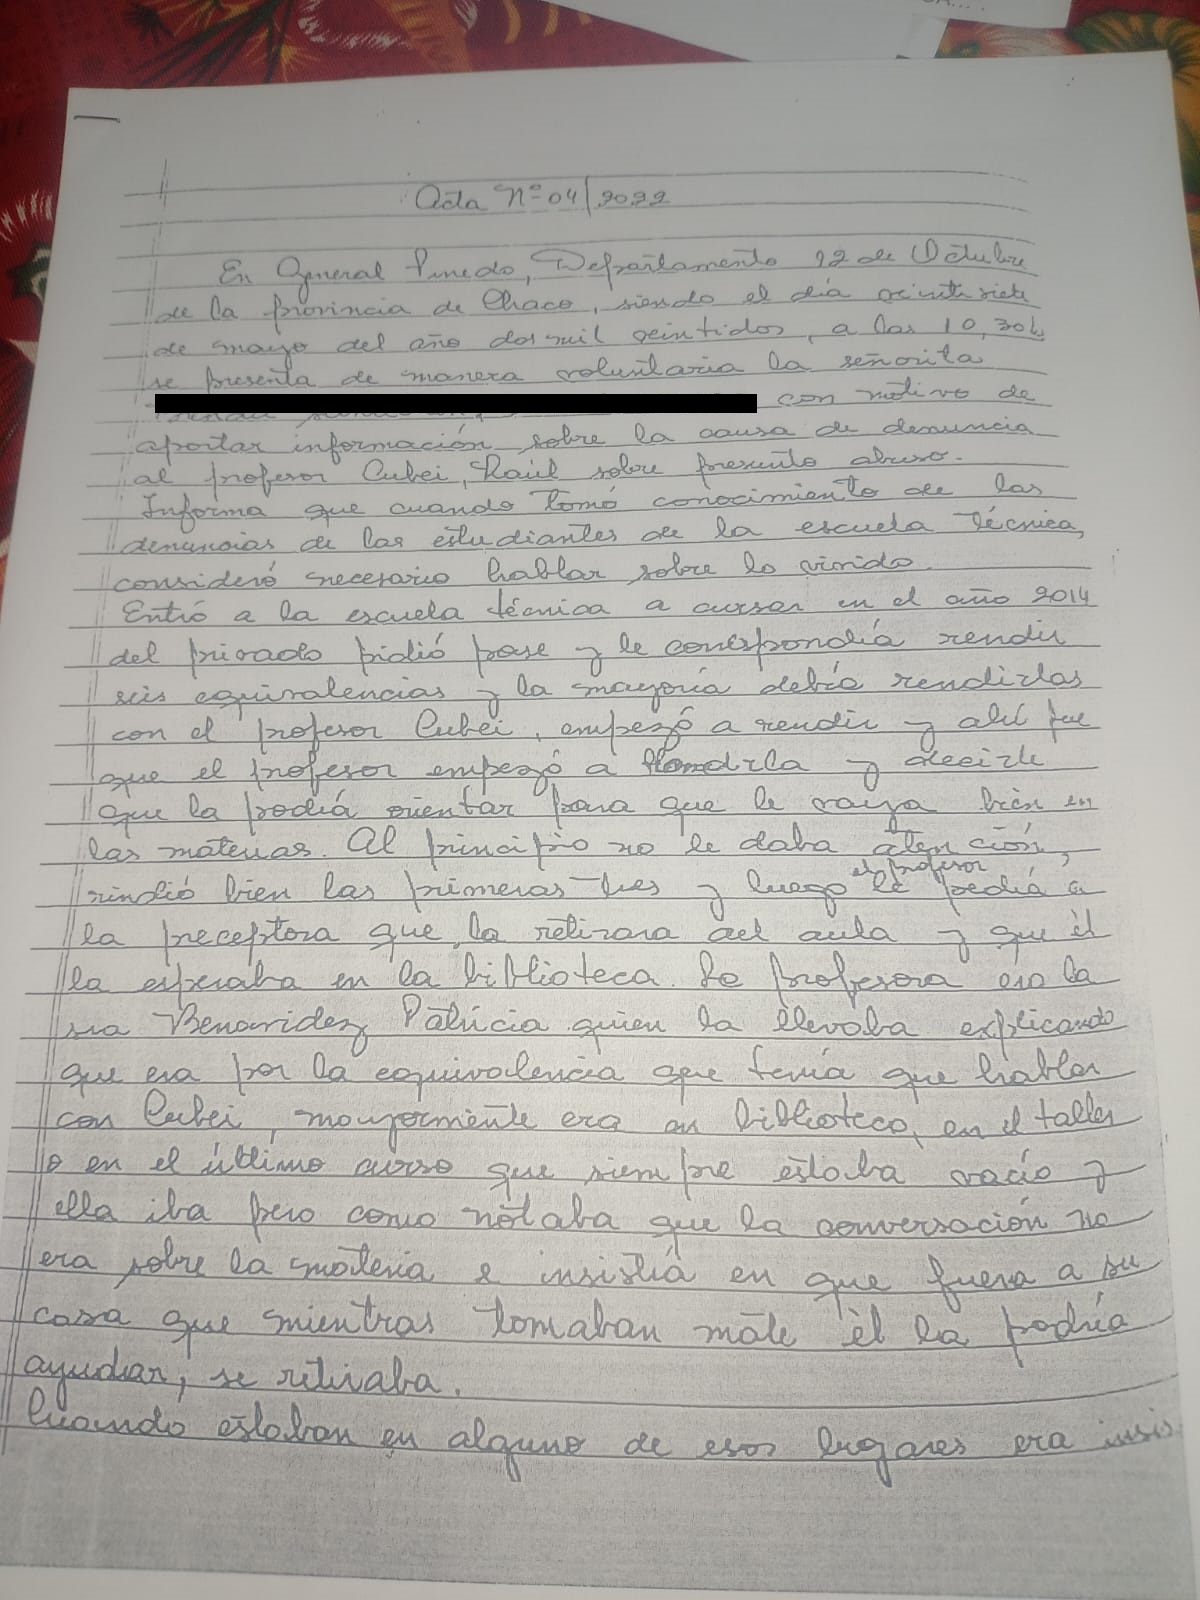 Acta Nº 04/2022
En General Pinedo, Departamento 12 de Octubre
de la provincia de Chaco, siendo el día veintisiete
de mayo del año dos mil veintidos, a las 10,30 h
se presenta de manera voluntaria la señorita
con motivo de
aportar información sobre la causa de denuncia
al profesor Cubei, Raúl sobre presunto abuso.
Informa que cuando tomó conocimiento de las
denuncias de las estudiantes de la escuela técnica,
consideró necesario hablar sobre lo vivido.
Entró a la escuela técnica a cursar en el año 2014
del privado pidió pase y le correspondía rendir
seis equivalencias y la mayoría debía rendirlas
con el profesor Cubei, empezó a rendir y ahí fue
que el profesor empezó a llamarla y decirle
que la podía orientar para que le vaya bien en
las materias. Al principio no le daba atención,
rindió bien las primeras tres y luego el profesor le pedía a
la preceptora que la retirara del aula y que él
la esperaba en la biblioteca. La profesora era la
sra Benavidez Patricia quien la llevaba explicando
que era por la equivalencia que tenía que hablar
con Cubei, mayormente era en biblioteca, en el taller
o en el último curso que siempre estaba vacío y
ella iba pero como notaba que la conversación no
era sobre la materia e insistía en que fuera a su
casa que mientras tomaban mate él la podría
ayudar, se retiraba.
Cuando estaban en alguno de esos lugares era insis